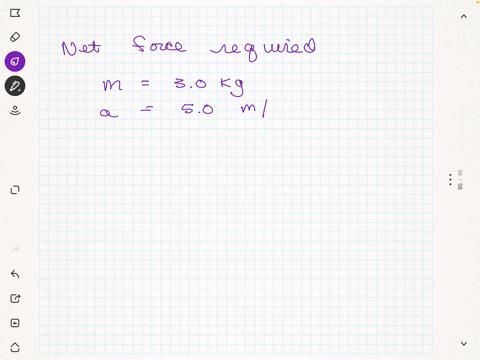 Net force required
m = 3.0 kg
a = 5.0 m/
98 / 98